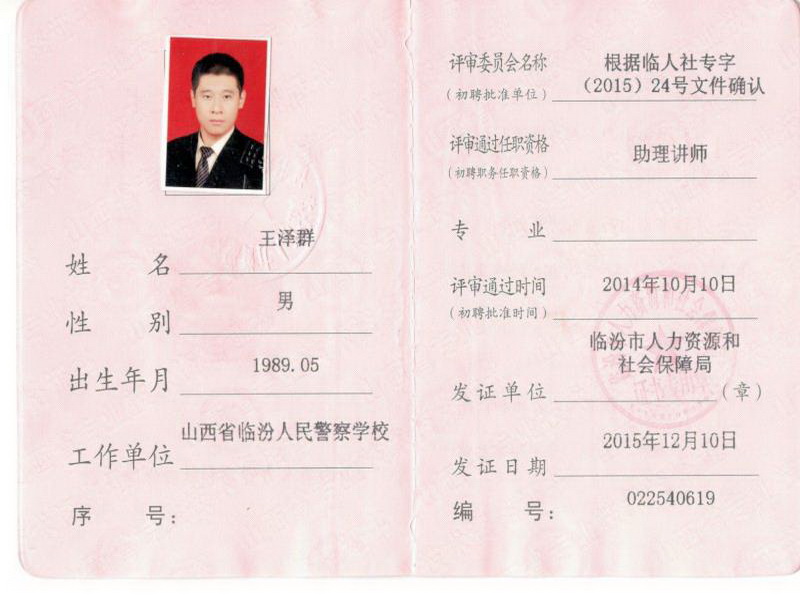 姓名 王泽群
性别 男
出生年月 1989.05
工作单位 山西省临汾人民警察学校
序号：
评审委员会名称 根据临人社专字
（初聘批准单位） （2015）24号文件确认
评审通过任职资格 助理讲师
（初聘职务任职资格）
专业
评审通过时间 2014年10月10日
（初聘批准时间）
临汾市人力资源和
发证单位 社会保障局 （章）
发证日期 2015年12月10日
编号： 022540619